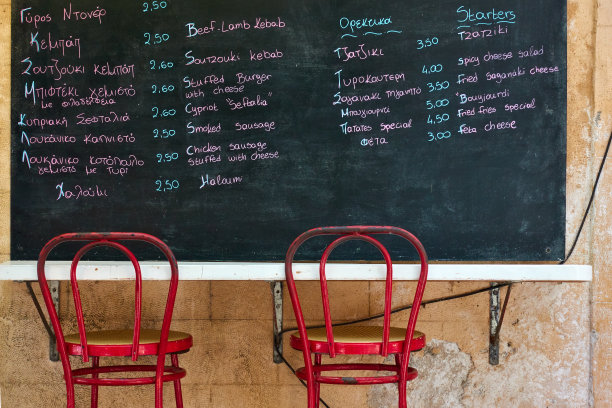 Γύρος Ντονέρ 2.50
Κεμπάπ 2.50 Beef-Lamb Kebab
Σουτζούκι κεμπάπ 2.60 Soutzouki kebab
Μπιφτέκι γεμιστό 2.60 Stuffed Burger
με φιλαδέλφεια with cheese
Κυπριακή Σεφταλιά 2.60 Cypriot "Seftalia"
Λουκάνικο καπνιστό 2.50 Smoked sausage
Λουκάνικο κοτόπουλο 2.50 Chicken sausage
γεμιστό με τυρί stuffed with cheese
Χαλούμι 2,50 Haloumi
Ορεκτικά Starters
Τζατζίκι 3.50 Tzatziki
Τυροκαυτερή 4.00 Spicy cheese salad
Σαγανάκι τηγανητό 3.50 Fried Saganaki cheese
Μπουγιουρντί 5.00 "Bougjourdi
Πατάτες special 4.50 Fried fries special
Φέτα 3.00 Feta cheese